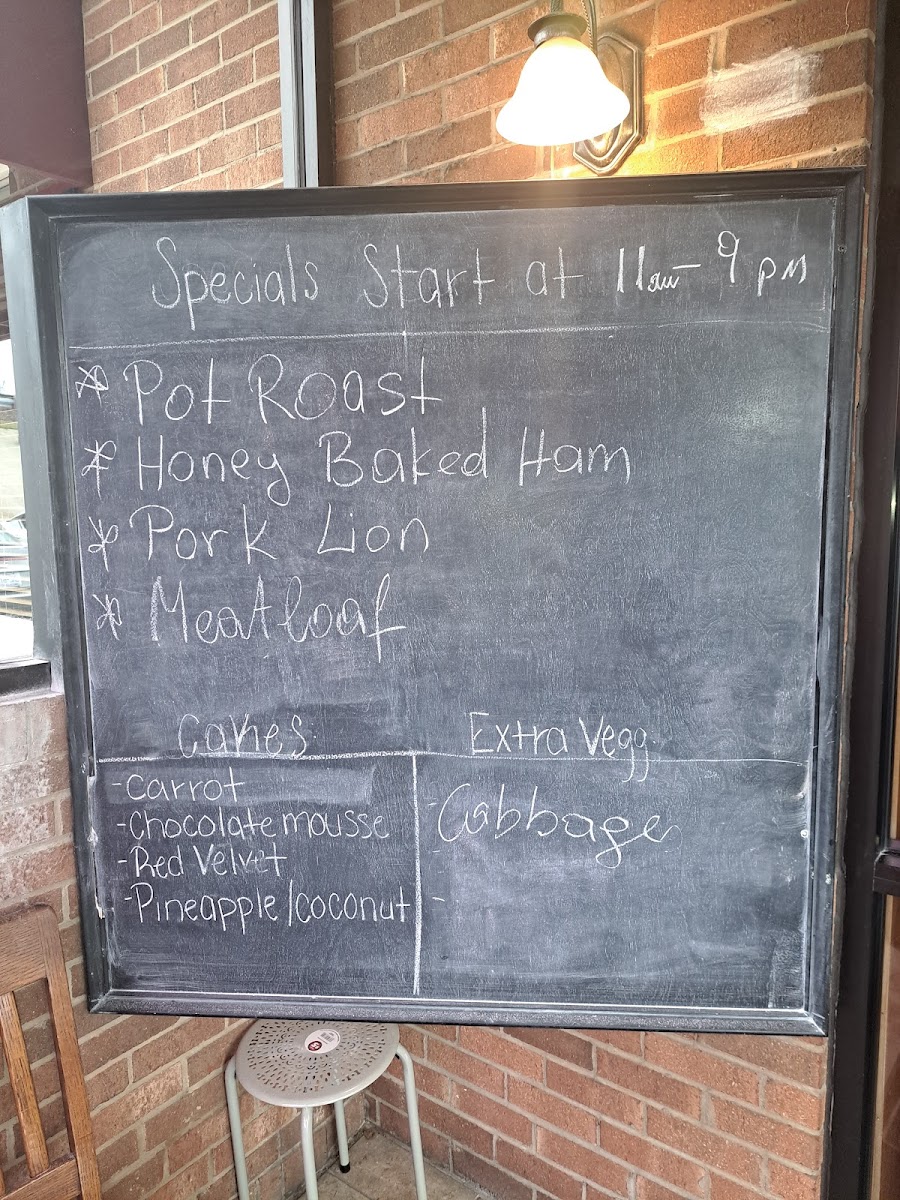 Specials Start at 11am - 9 pm
* Pot Roast
* Honey Baked Ham
* Pork Lion
* Meatloaf
Cakes
- Carrot
- Chocolate mousse
- Red Velvet
- Pineapple/coconut
Extra Vegg
- Cabbage
-